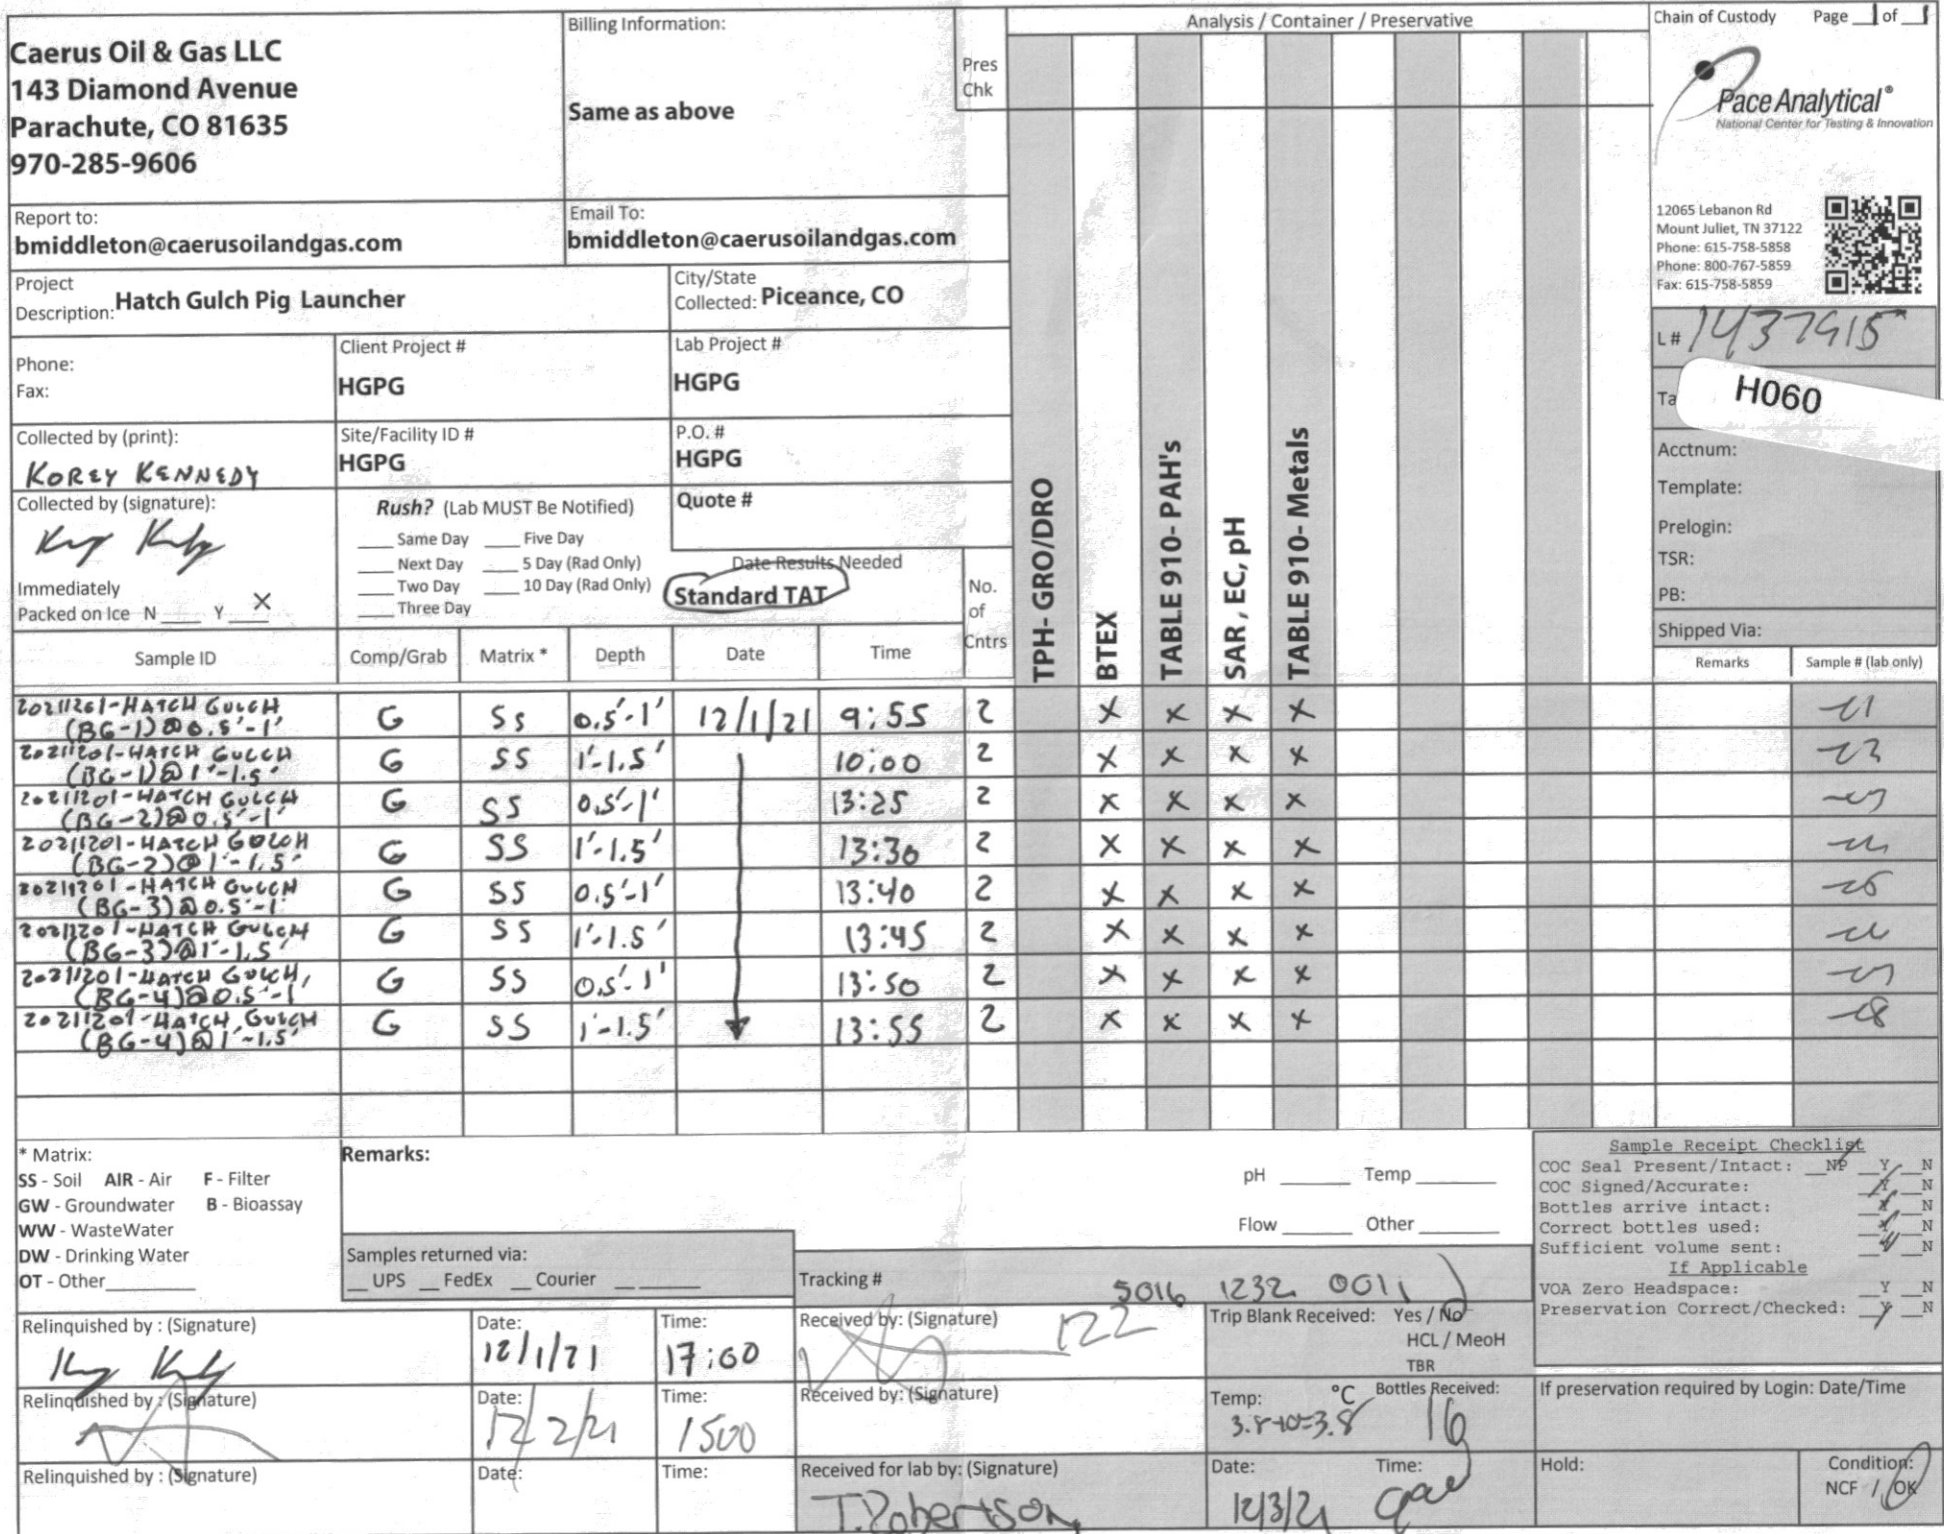 Caerus Oil & Gas LLC
143 Diamond Avenue
Parachute, CO 81635
970-285-9606
Billing Information:
Same as above
Pres
Chk
Analysis / Container / Preservative
Chain of Custody Page 1 of 1
Pace Analytical®
National Center for Testing & Innovation
12065 Lebanon Rd
Mount Juliet, TN 37122
Phone: 615-758-5858
Phone: 800-767-5859
Fax: 615-758-5859
Report to:
bmiddleton@caerusoilandgas.com
Email To:
bmiddleton@caerusoilandgas.com
Project
Description: Hatch Gulch Pig Launcher
City/State
Collected: Piceance, CO
Phone:
Fax:
Client Project #
HGPG
Lab Project #
HGPG
L# 1437915
H060
Collected by (print):
KOREY KENNEDY
Site/Facility ID #
HGPG
P.O. #
HGPG
Acctnum:
Template:
Prelogin:
TSR:
PB:
Shipped Via:
Collected by (signature):
Rush? (Lab MUST Be Notified)
___ Same Day ___ Five Day
___ Next Day ___ 5 Day (Rad Only)
___ Two Day ___ 10 Day (Rad Only)
___ Three Day
Quote #
Date Results Needed
Standard TAT
Immediately
Packed on Ice N ___ Y X
No.
of
Cntrs
TPH- GRO/DRO
BTEX
TABLE 910- PAH's
SAR , EC, pH
TABLE 910- Metals
Sample ID Comp/Grab Matrix * Depth Date Time Remarks Sample # (lab only)
20211201-HATCH GULCH
(BG-1)@0.5'-1' G SS 0.5'-1' 12/1/21 9:55 2 X X X X
20211201-HATCH GULCH
(BG-1)@1'-1.5' G SS 1'-1.5' 10:00 2 X X X X
20211201-HATCH GULCH
(BG-2)@0.5'-1' G SS 0.5'-1' 13:25 2 X X X X
20211201-HATCH GULCH
(BG-2)@1'-1.5' G SS 1'-1.5' 13:30 2 X X X X
20211201-HATCH GULCH
(BG-3)@0.5'-1' G SS 0.5'-1' 13:40 2 X X X X
20211201-HATCH GULCH
(BG-3)@1'-1.5' G SS 1'-1.5' 13:45 2 X X X X
20211201-HATCH GULCH
(BG-4)@0.5'-1 G SS 0.5'-1' 13:50 2 X X X X
20211201-HATCH GULCH
(BG-4)@1'-1.5' G SS 1'-1.5' 13:55 2 X X X X
* Matrix:
SS - Soil AIR - Air F - Filter
GW - Groundwater B - Bioassay
WW - WasteWater
DW - Drinking Water
OT - Other
Remarks:
pH ___ Temp ___
Flow ___ Other ___
Samples returned via:
__ UPS __ FedEx __ Courier __
Tracking # 5016 1232 0011
Sample Receipt Checklist
COC Seal Present/Intact: __NP __Y __N
COC Signed/Accurate: __Y __N
Bottles arrive intact: __Y __N
Correct bottles used: __Y __N
Sufficient volume sent: __Y __N
If Applicable
VOA Zero Headspace: __Y __N
Preservation Correct/Checked: __Y __N
Relinquished by : (Signature)
Date: 12/1/21
Time: 17:00
Received by: (Signature)
122
Trip Blank Received: Yes / No
HCL / MeoH
TBR
Relinquished by : (Signature)
Date: 12/2/21
Time: 1500
Received by: (Signature)
Temp: °C
3.8+0=3.8
Bottles Received:
16
If preservation required by Login: Date/Time
Relinquished by : (Signature)
Date:
Time:
Received for lab by: (Signature)
T. Robertson
Date: 12/3/21
Time:
Hold:
Condition:
NCF / OK